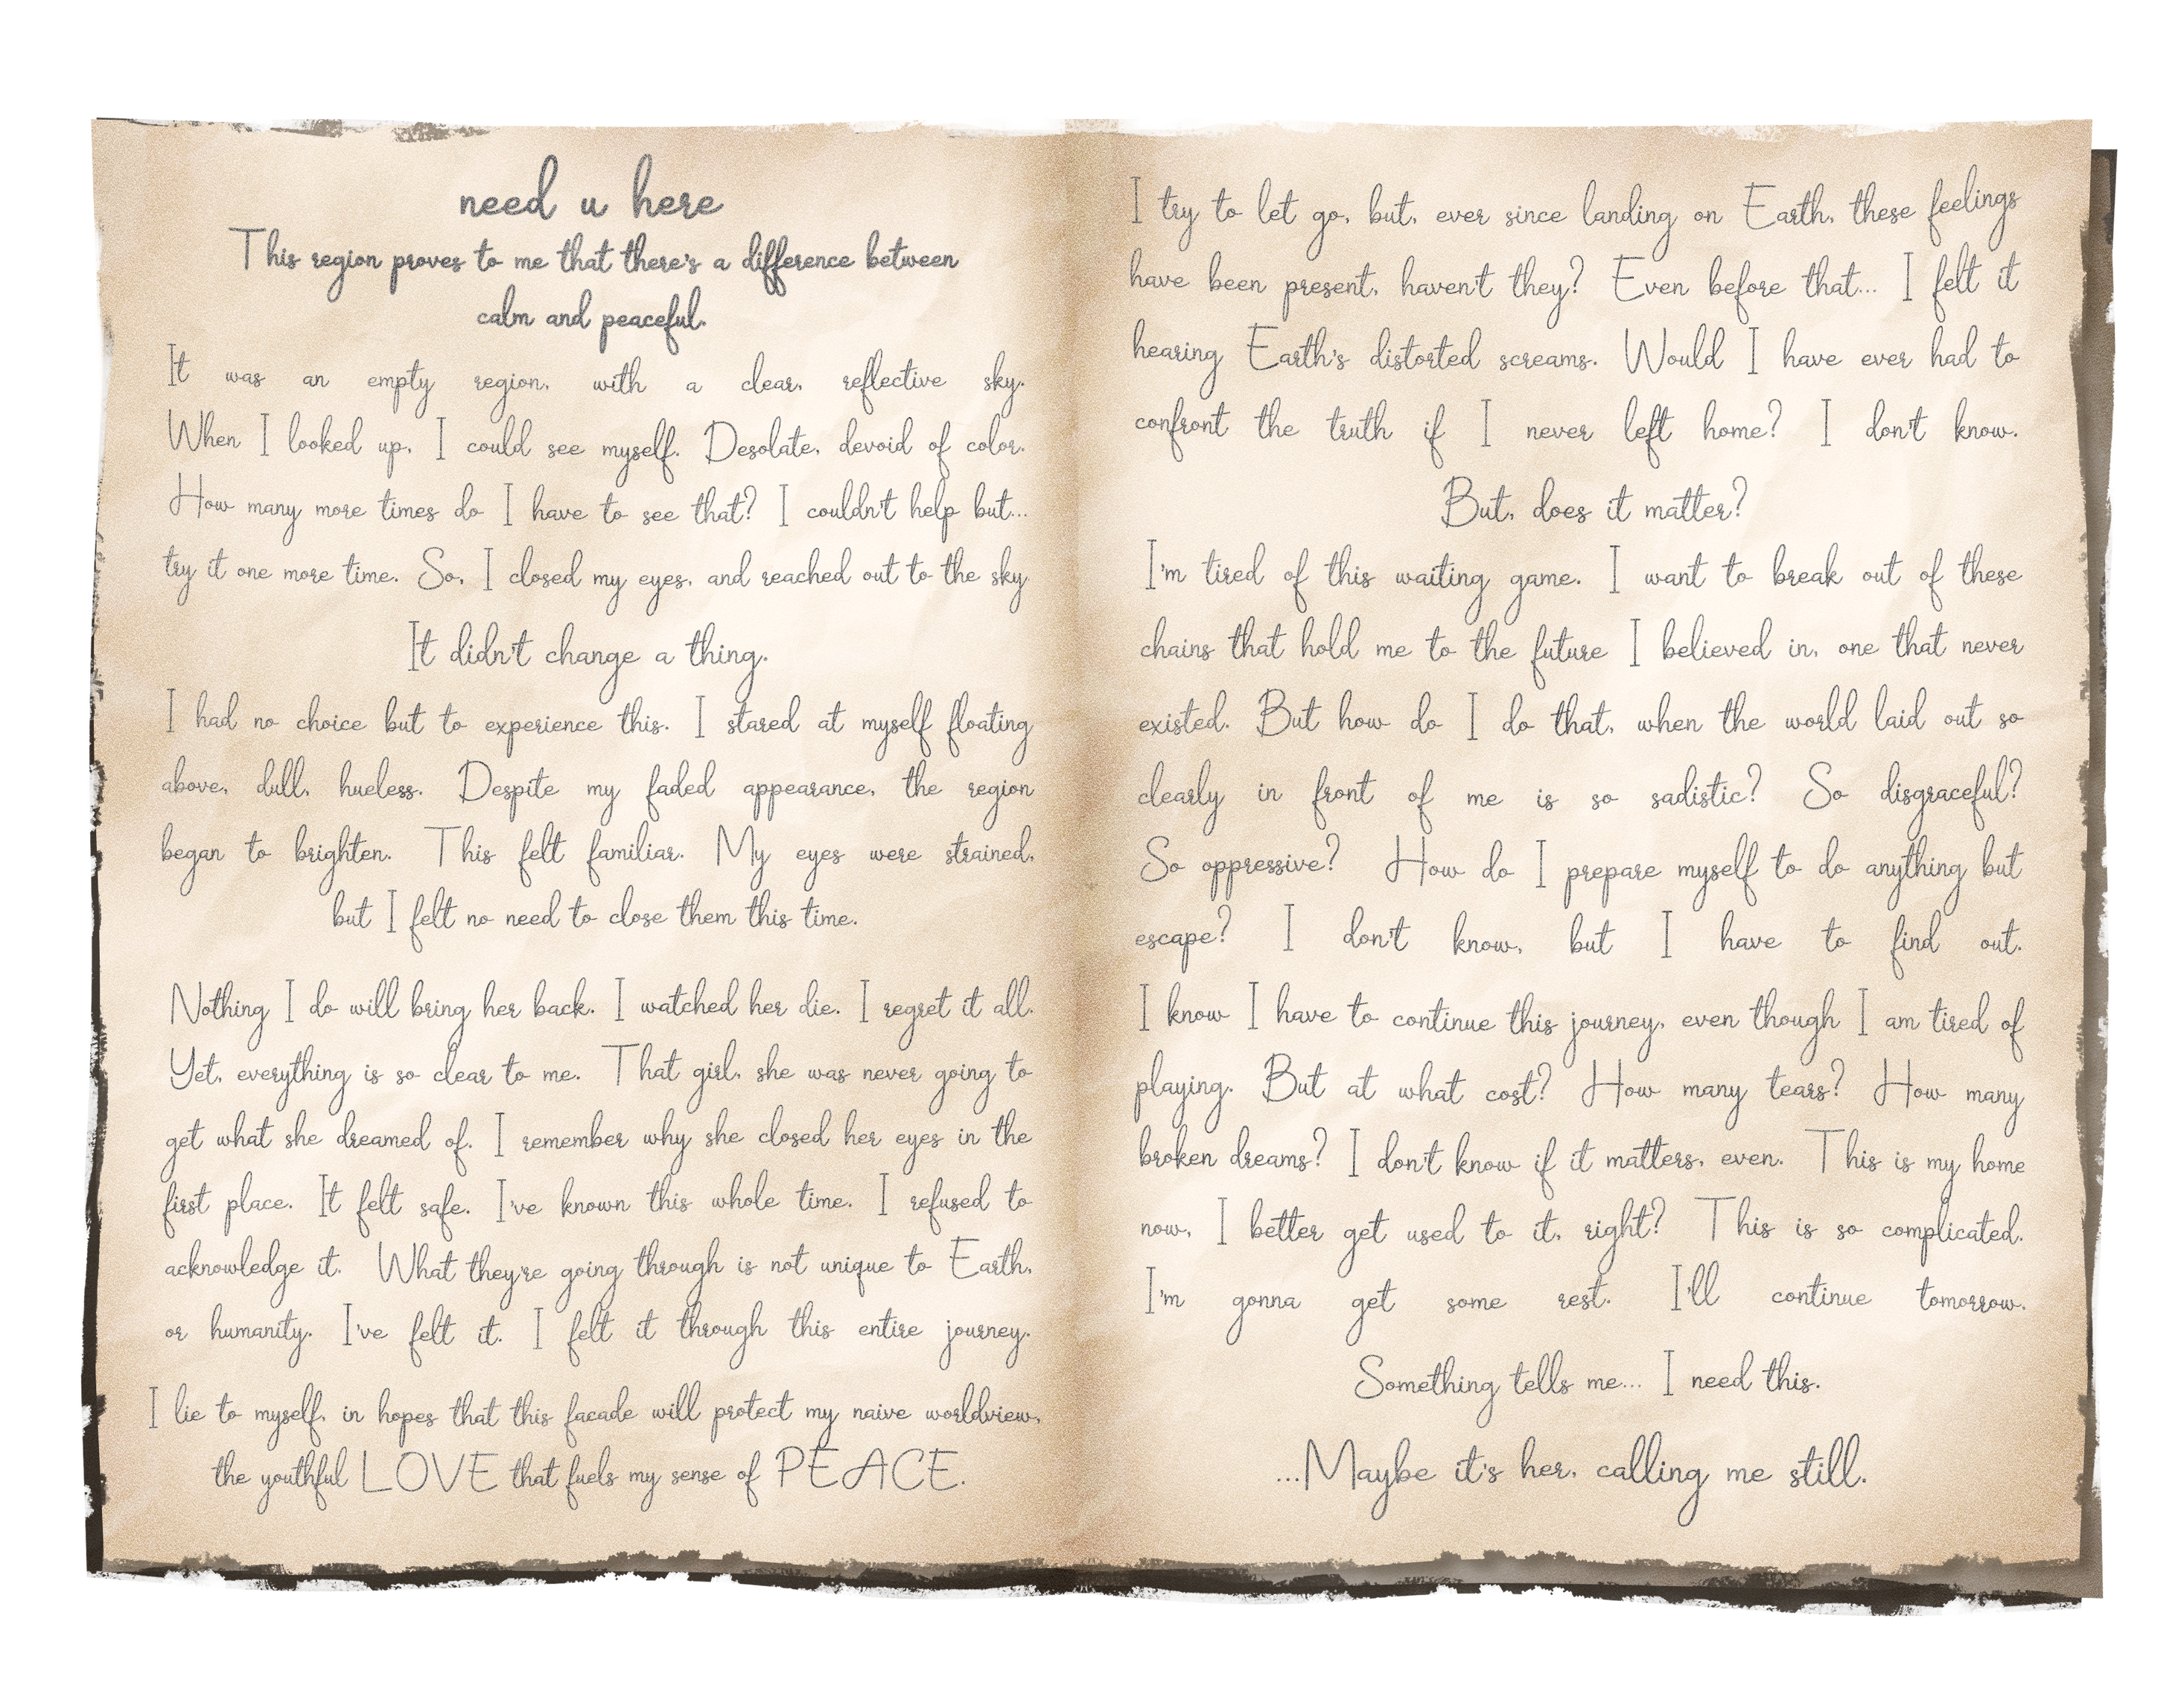 need u here
This region proves to me that there's a difference between
calm and peaceful.
It was an empty region, with a clear, reflective sky.
When I looked up, I could see myself. Desolate, devoid of color.
How many more times do I have to see that? I couldn't help but...
try it one more time. So, I closed my eyes, and reached out to the sky
It didn't change a thing.
I had no choice but to experience this. I stared at myself floating
above, dull, hueless. Despite my faded appearance, the region
began to brighten. This felt familiar. My eyes were strained,
but I felt no need to close them this time.
Nothing I do will bring her back. I watched her die. I regret it all.
Yet, everything is so clear to me. That girl, she was never going to
get what she dreamed of. I remember why she closed her eyes in the
first place. It felt safe. I've known this whole time. I refused to
acknowledge it. What they're going through is not unique to Earth,
or humanity. I've felt it. I felt it through this entire journey.
I lie to myself, in hopes that this facade will protect my naive worldview,
the youthful LOVE that fuels my sense of PEACE.
I try to let go, but, ever since landing on Earth, these feelings
have been present, haven't they? Even before that... I felt it
hearing Earth's distorted screams. Would I have ever had to
confront the truth if I never left home? I don't know.
But, does it matter?
I'm tired of this waiting game. I want to break out of these
chains that hold me to the future I believed in, one that never
existed. But how do I do that, when the world laid out so
clearly in front of me is so sadistic? So disgraceful?
So oppressive? How do I prepare myself to do anything but
escape? I don't know, but I have to find out.
I know I have to continue this journey, even though I am tired of
playing. But at what cost? How many tears? How many
broken dreams? I don't know if it matters, even. This is my home
now, I better get used to it, right? This is so complicated.
I'm gonna get some rest. I'll continue tomorrow.
Something tells me... I need this.
...Maybe it's her, calling me still.